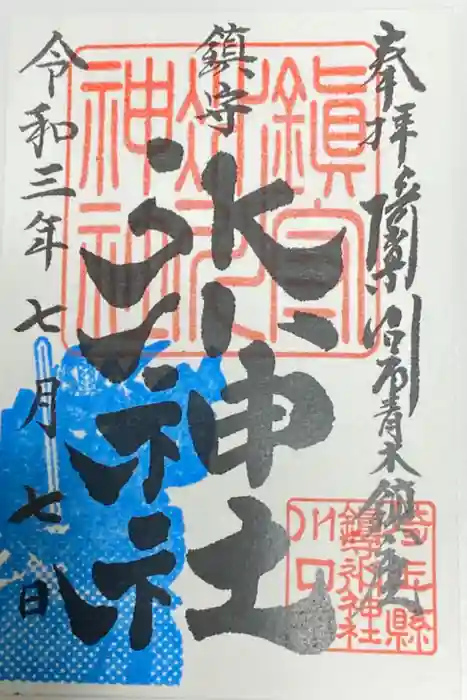 奉拝 川口市青木鎮座
鎮守
氷川神社
令和三年七月七日
鎮守氷川神社
埼玉縣
鎮守氷川神社
川口